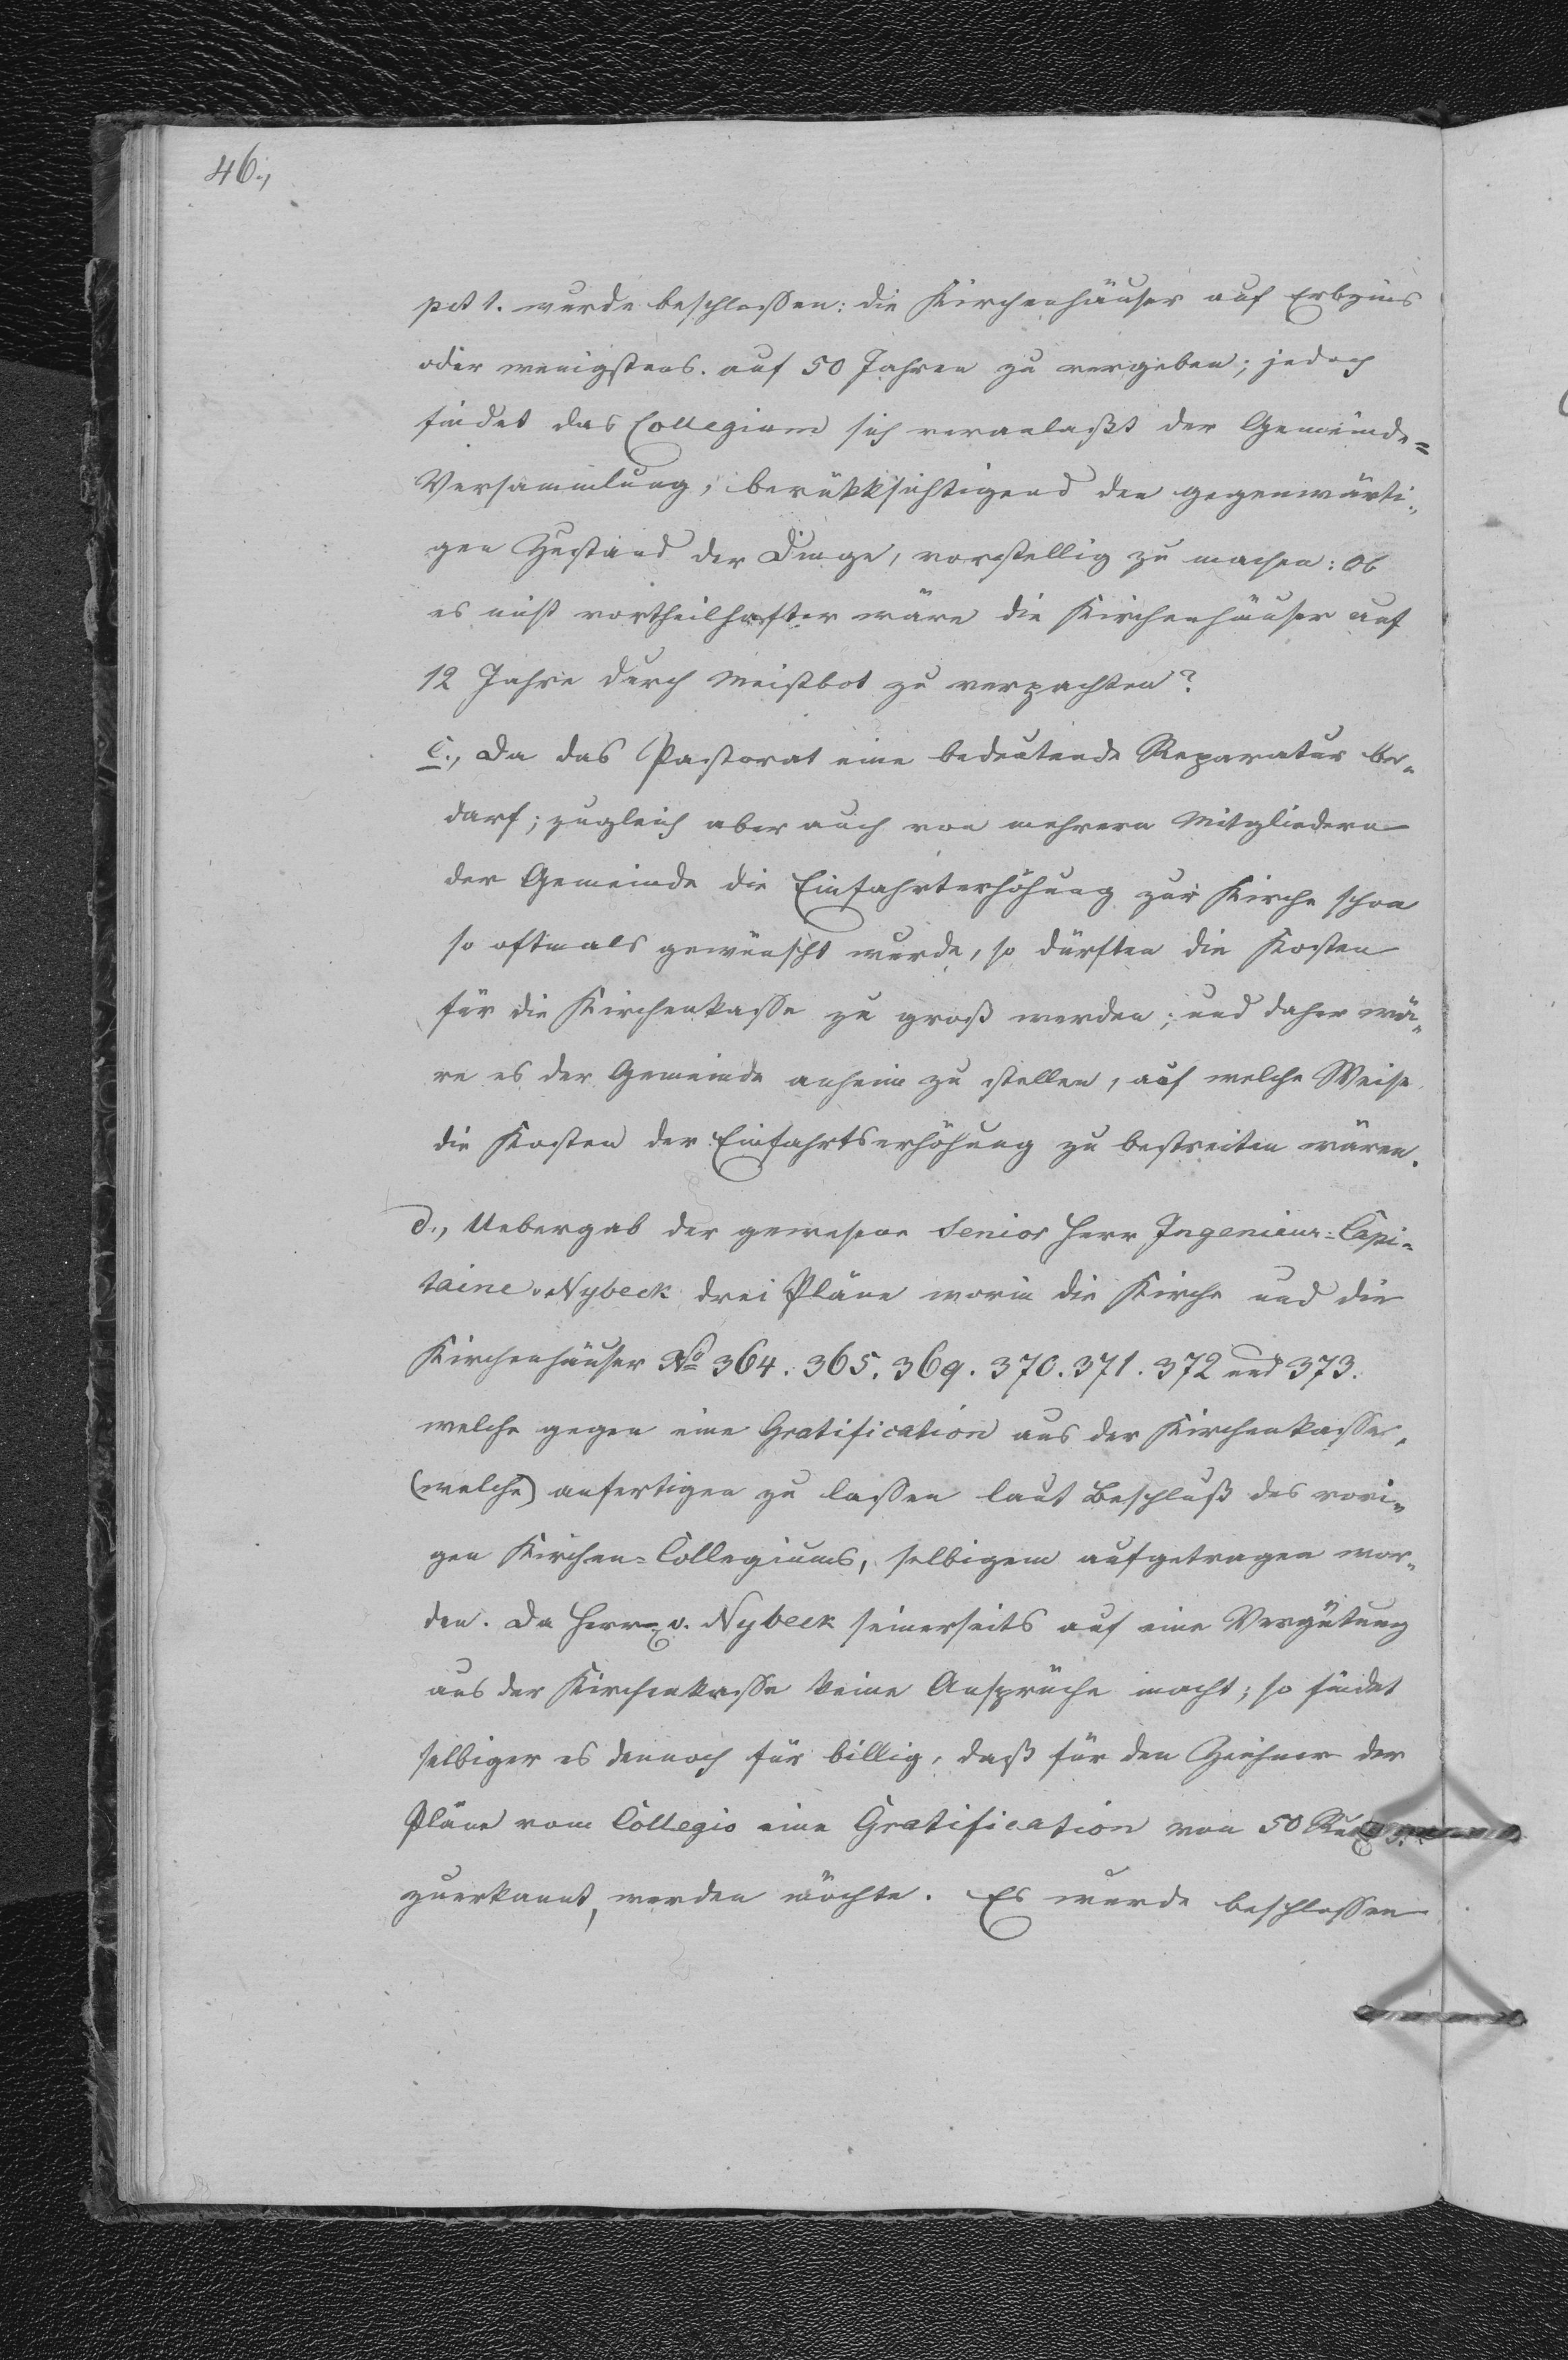 46.,
pct 1. wurde beschloßen: die Kirchenhäuser auf Erbzins
oder wenigstens. auf 50 Jahren zu vergeben; jedoch
findet das Collegium sich veranlaßt der Gemeinde=
Versammlung, berükksichtigend den gegenwärti„
gen Zustand der Dinge, vorstellig zu machen: Ob
es nicht vortheilhafter wäre die Kirchenhäuser auf
12 Jahre durch Meistbot zu verpachten?
C., Da das Pastorat eine bedeutende Reparatur be„
darf; zugleich aber auch von mehrern Mitgliedern
der Gemeinde die Einfahrterhöhung zur Kirche schon
so oftmals gewünscht wurde, so dürften die Kosten
für die Kirchenkasse zu groß werden; und daher wä„
re es der Gemeinde anheim zu stellen, auf welche Weise
die Kosten der Einfahrtserhöhung zu bestreiten wären.
d., Uebergab der gewesene Senior Herr Ingenieur=Capi=
taine v. Nybeck drei Pläne worin die Kirche und die
Kirchenhäuser No 364. 365. 369. 370. 371. 372 und 373.
welche gegen eine Gratification aus der Kirchenkasse,
(welche) anfertigen zu laßen laut Beschluß des vori„
gen Kirchen=Collegiums, selbigem aufgetragen wor„
den. Da Herr v. Nybeck seinerseits auf eine Vergütung
aus der Kirchenkasse keine Ansprüche macht; so findet
selbiger es dennoch für billig, daß für den Zeichner der
Pläne vom Collegio eine Gratification von 50 Rub
zuerkannt, werden möchte. Es wurde beschloßen